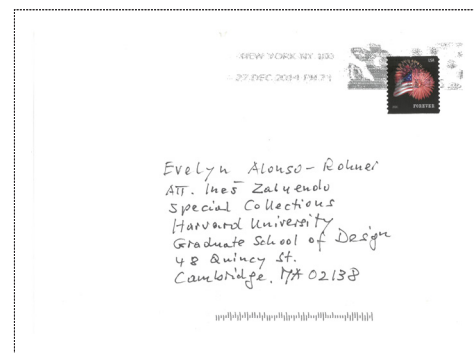 NEW YORK NY 100
27 DEC 2014 PM
FOREVER
Evelyn Alonso-Rohner
ATT. Ines Zalduendo
Special Collections
Harvard University
Graduate School of Design
48 Quincy St.
Cambridge, MA 02138